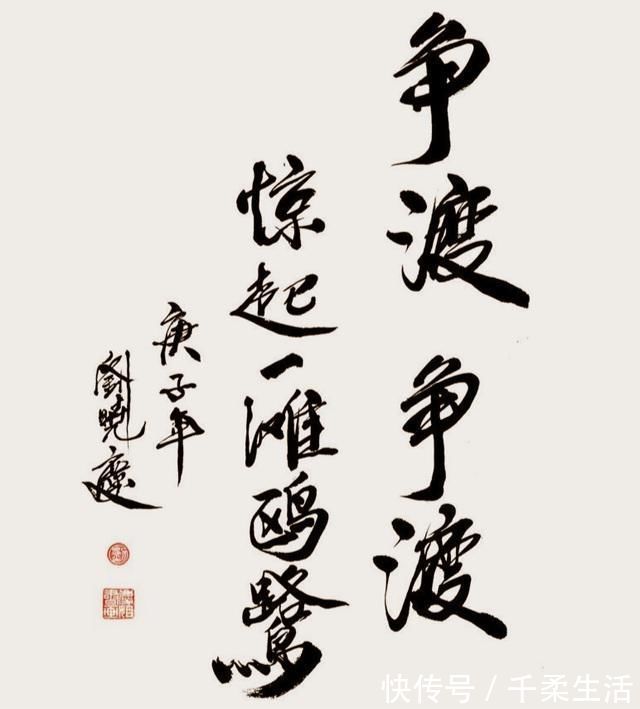 争渡争渡
惊起一滩鸥鹭
庚子年
劉曉慶
快传号 / 千柔生活